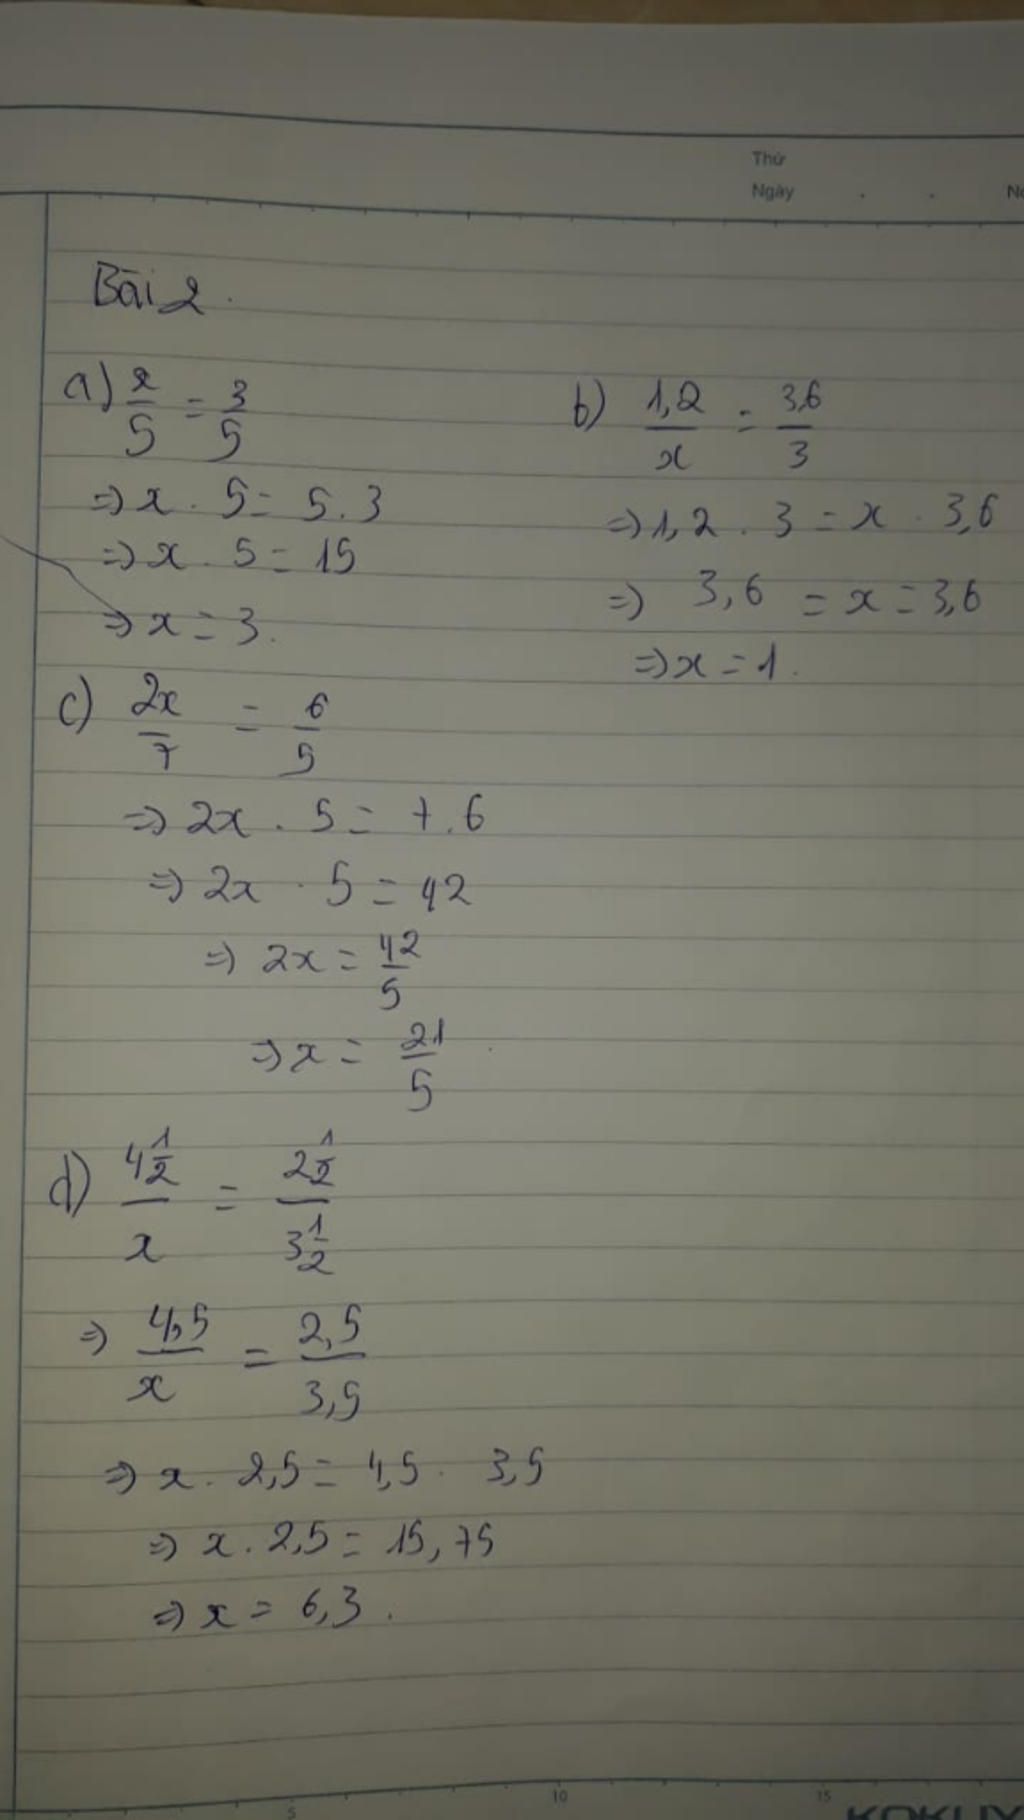 Thứ
Ngày . . No
Bài 2.
a) x/5 = 3/5
=> x . 5 = 5 . 3
=> x . 5 = 15
=> x = 3.
b) 1,2/x = 3,6/3
=> 1,2 . 3 = x . 3,6
=> 3,6 = x = 3,6
=> x = 1.
c) 2x/7 = 6/5
=> 2x . 5 = 7 . 6
=> 2x . 5 = 42
=> 2x = 42/5
=> x = 21/5
d) 4 1/2 / x = 2 1/2 / 3 1/2
=> 4,5/x = 2,5/3,5
=> x . 2,5 = 4,5 . 3,5
=> x . 2,5 = 15,75
=> x = 6,3.
5 10 15
KOKUYO